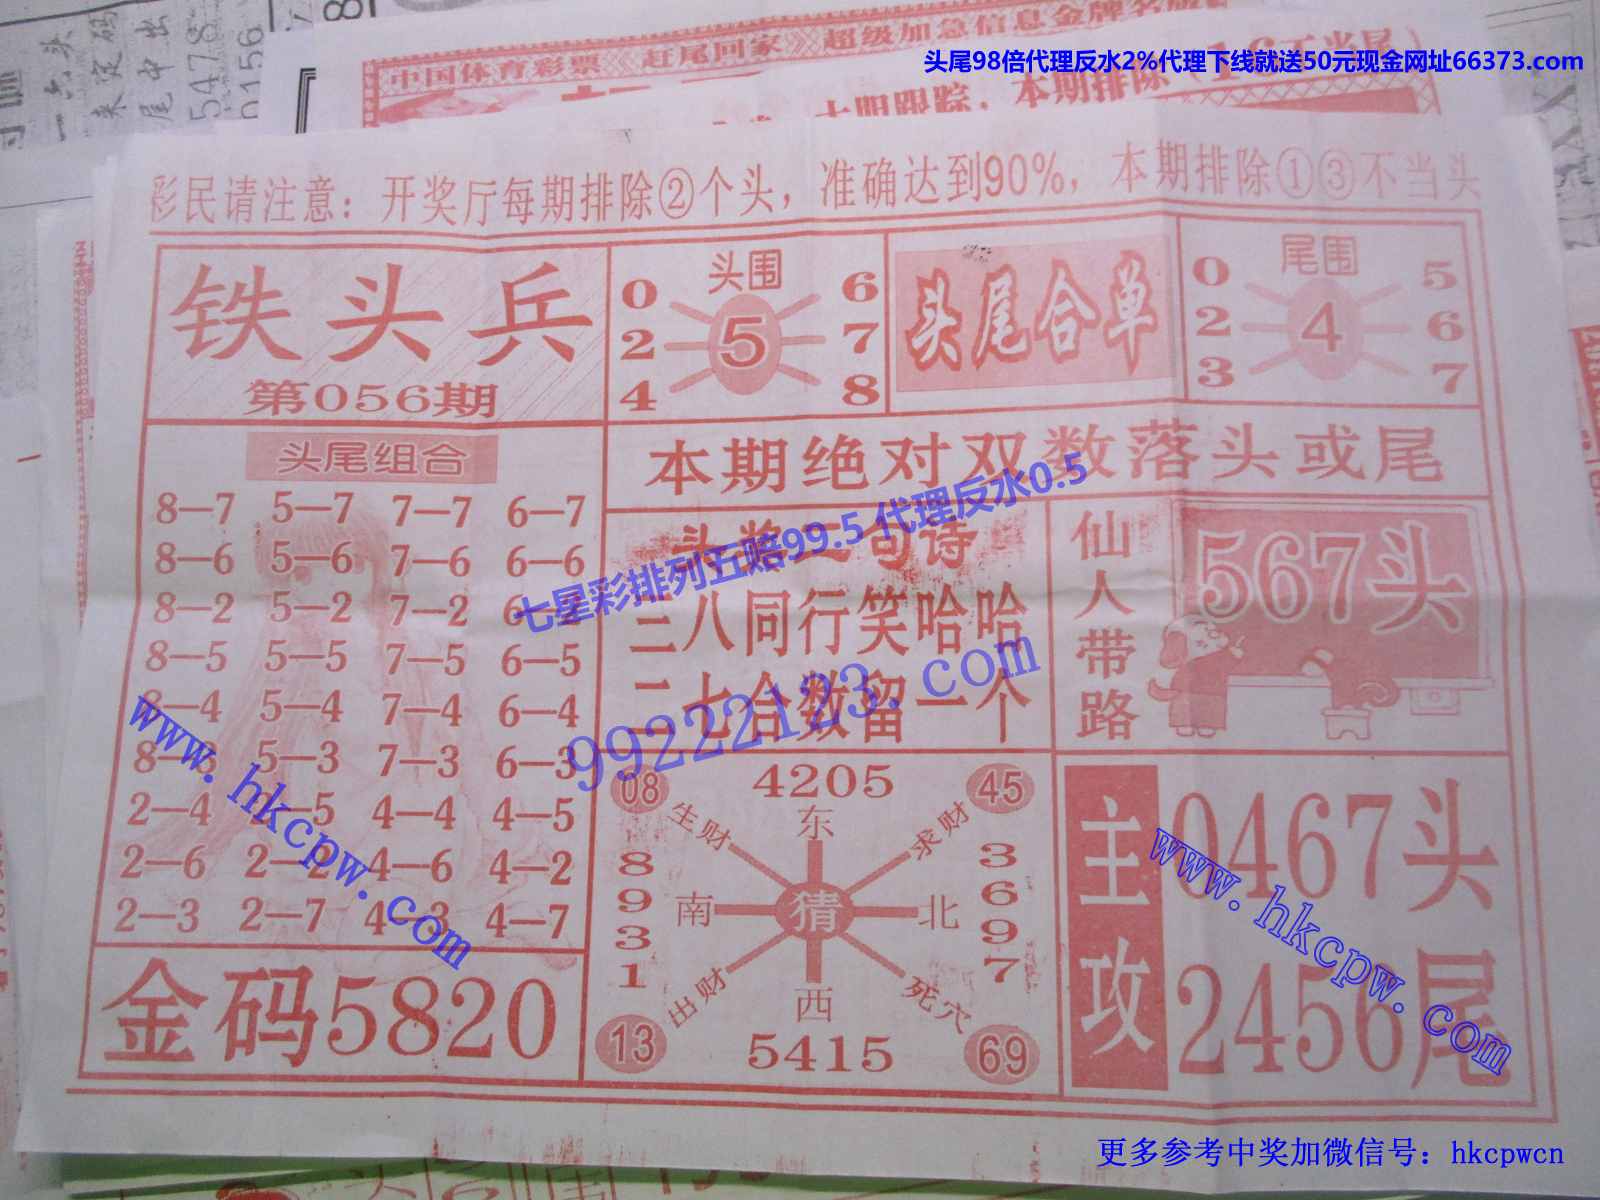 头尾98倍代理反水2%代理下线就送50元现金网址66373.com
一六头
来定码
尾中出
5478
0156
中国体育彩票 赶尾回家 超级加急信息金牌名版
七期跟踪，本期排除
彩民请注意：开奖厅每期排除②个头，准确达到90%，本期排除①③不当头
铁头兵
第056期
头围
0 6
2 5 7
4 8
头尾合单
尾围
0 5
2 4 6
3 7
本期绝对双数落头或尾
头尾组合
8—7 5—7 7—7 6—7
8—6 5—6 7—6 6—6
8—2 5—2 7—2 6—2
8—5 5—5 7—5 6—5
8—4 5—4 7—4 6—4
8—3 5—3 7—3 6—3
2—4 2—5 4—4 4—5
2—6 2—2 4—6 4—2
2—3 2—7 4—3 4—7
金码5820
头奖二句诗
二八同行笑哈哈
二七合数留一个
仙人带路
567头
08 4205 45
生财 东 求财
8931 南 猜 北 3697
出财 西 死穴
13 5415 69
主攻
0467头
2456尾
七星彩排列五赔99.5 代理反水0.5
99222123.com
www.hkcpw.com
www.hkcpw.com
更多参考中奖加微信号：hkcpwcn